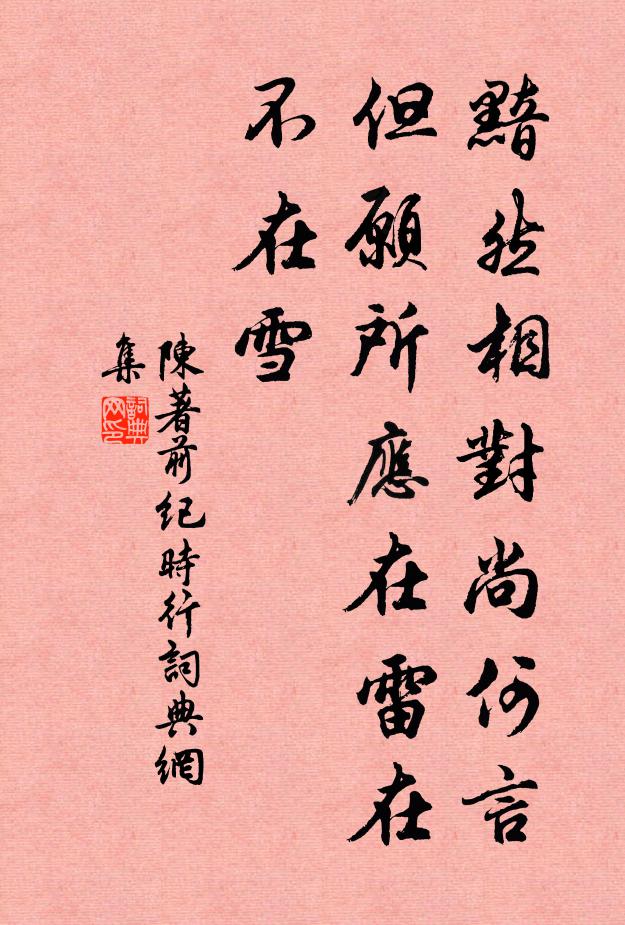 黯然相對尚何言
但願所應在雷在
不在雪
陳著前紀時行詞典網
集
詞典
网印